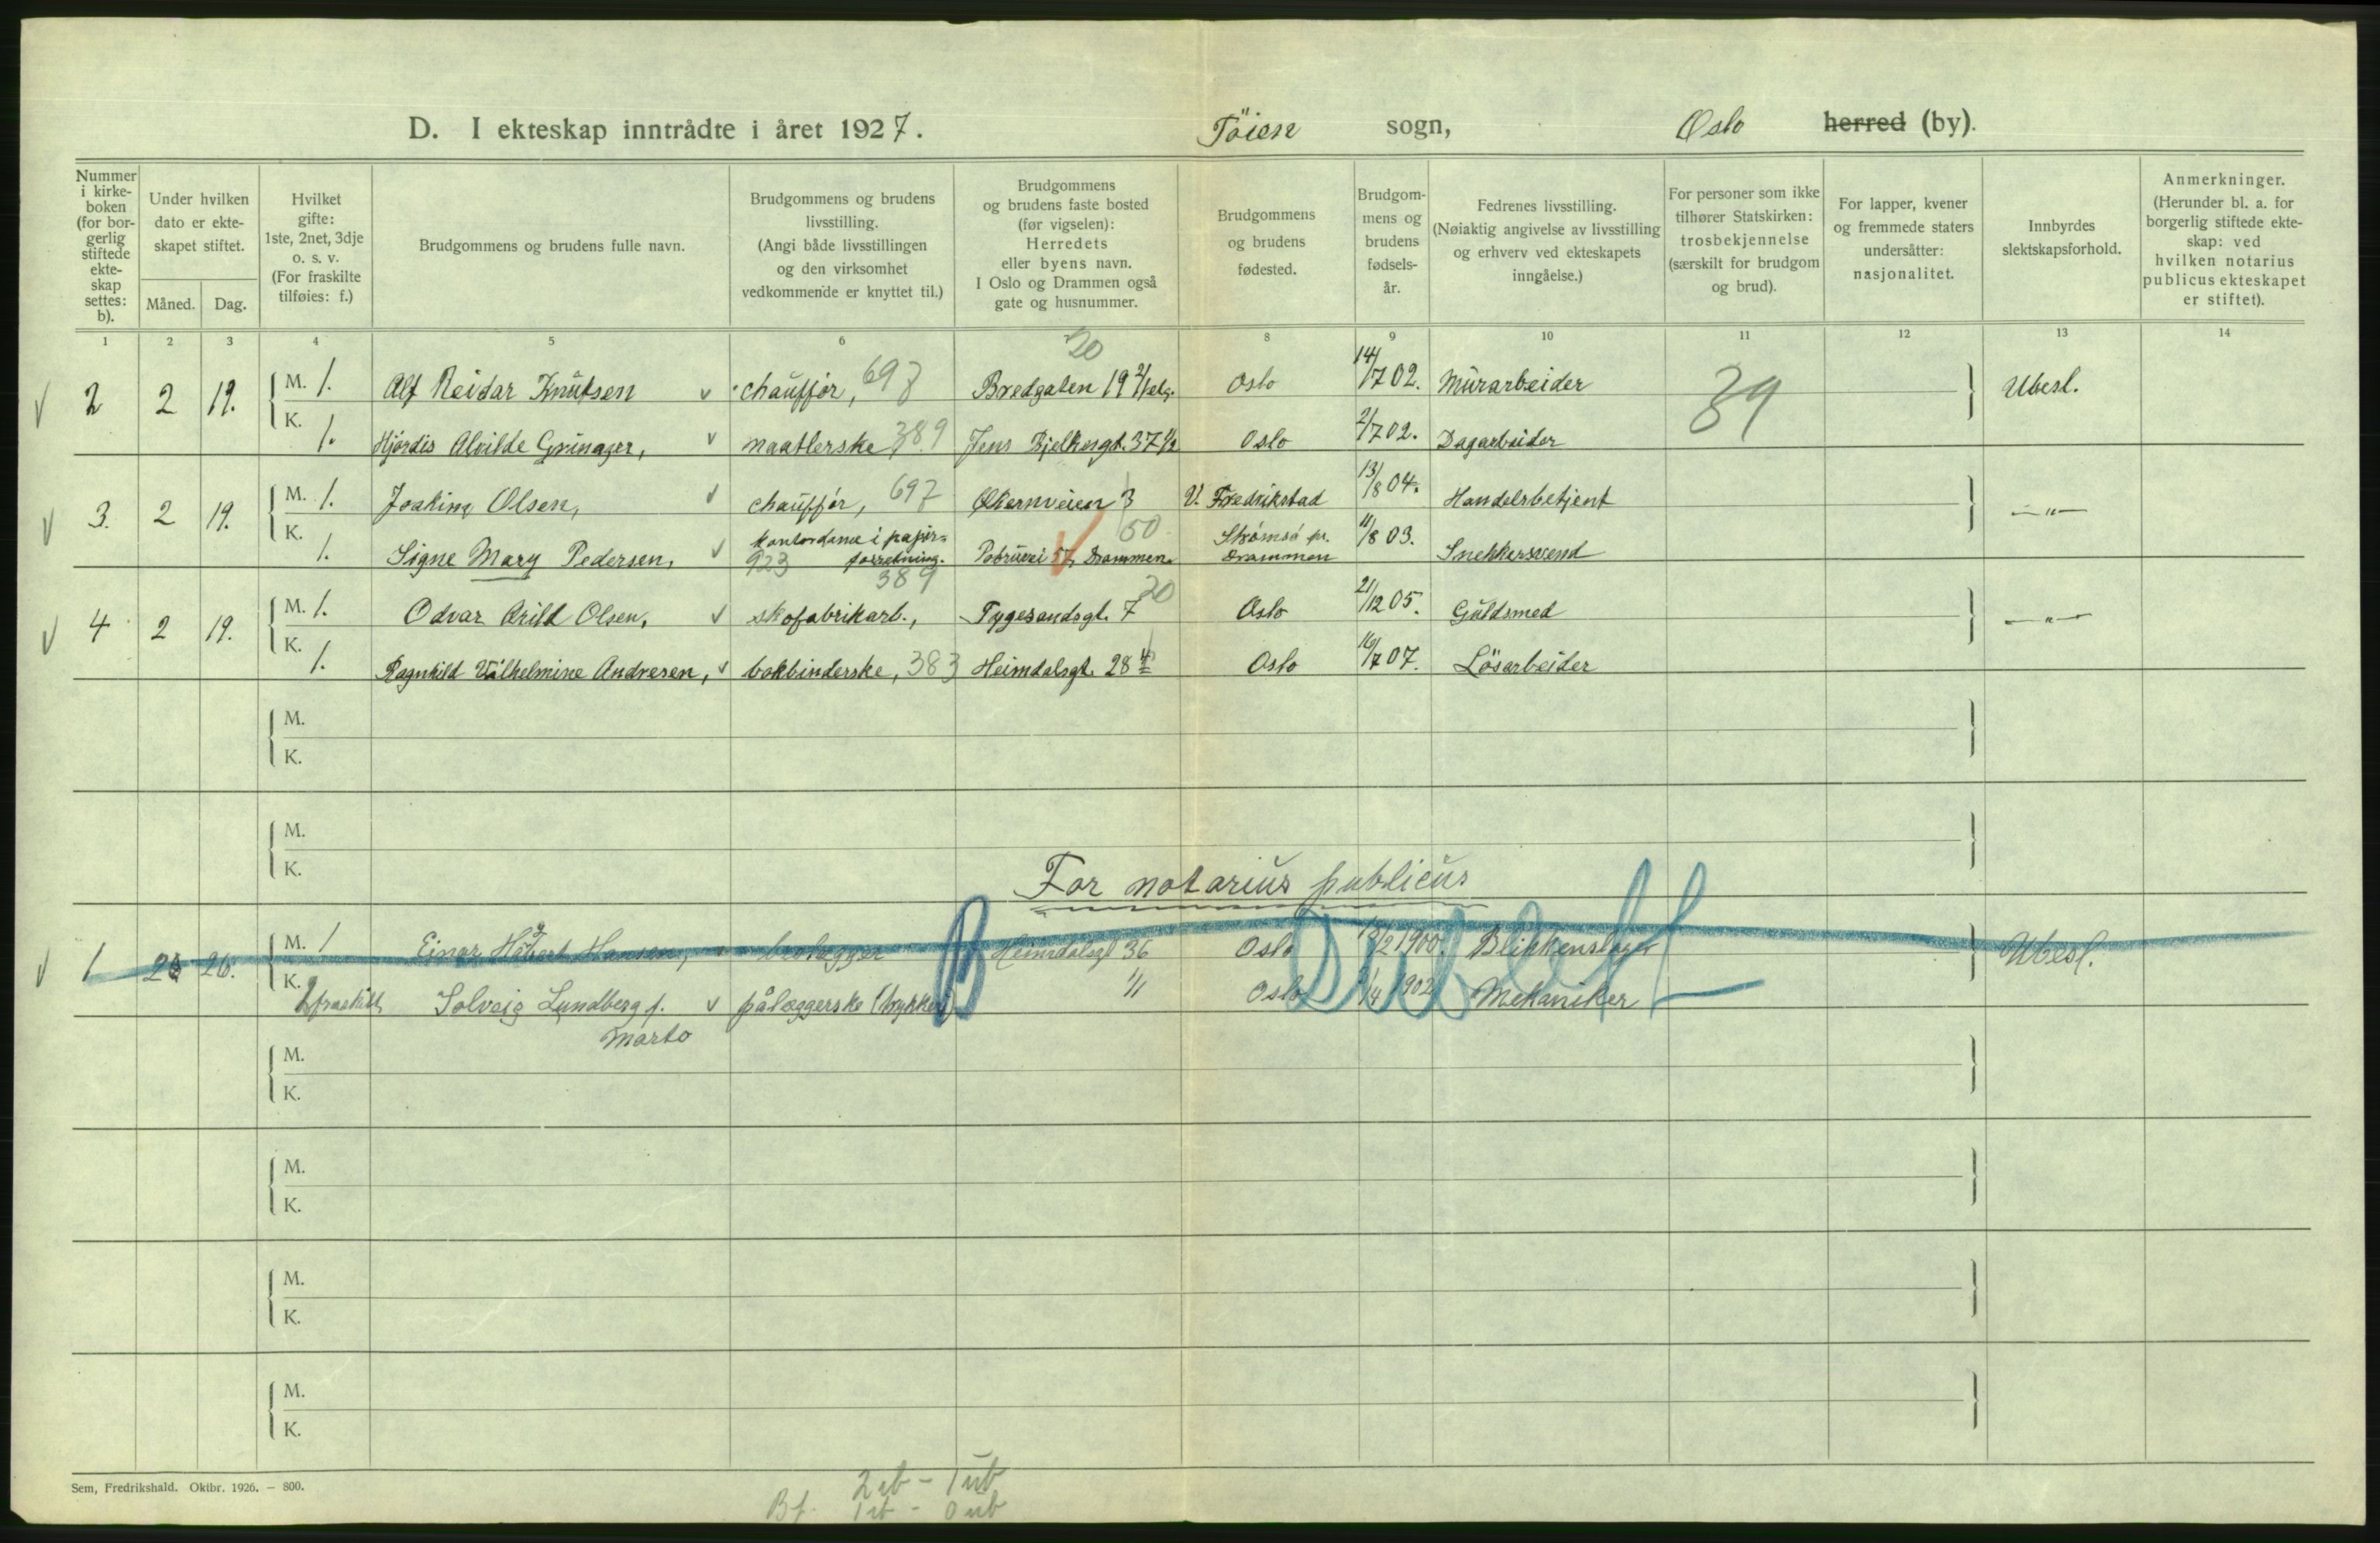 D. I ekteskap inntrådte i året 1927. Töien sogn, Oslo herred (by).
Nummer i kirke- boken (for bor- gerlig stiftede ekte- skap settes: b).
Under hvilken dato er ekte- skapet stiftet.
Måned. Dag.
Hvilket gifte: 1ste, 2net, 3dje o. s. v. (For fraskilte tilføies: f.)
Brudgommens og brudens fulle navn.
Brudgommens og brudens livsstilling. (Angi både livsstillingen og den virksomhet vedkommende er knyttet til.)
Brudgommens og brudens faste bosted (før vigselen): Herredets eller byens navn. I Oslo og Drammen også gate og husnummer.
Brudgommens og brudens fødested.
Brudgom- mens og brudens fødsels- år.
Fedrenes livsstilling. (Nøiaktig angivelse av livsstilling og erhverv ved ekteskapets inngåelse.)
For personer som ikke tilhører Statskirken: trosbekjennelse (særskilt for brudgom og brud).
For lapper, kvener og fremmede staters undersåtter: nasjonalitet.
Innbyrdes slektskapsforhold.
Anmerkninger. (Herunder bl. a. for borgerlig stiftede ekte- skap: ved hvilken notarius publicus ekteskapet er stiftet).
1 2 3 4 5 6 8 9 10 11 12 13 14
20
2 2 19. M. 1. Alf Reidar Knutsen chauffør, 697 Bredgaten 19 Oslo 14/7 02. Murarbeider 39 Ubesl.
K. 1. Hjørdis Alvilde Grinager, naatlerske 389 Jens Bjelkesgt. 37 Oslo 2/7 02. Dagarbeider
3. 2 19. M. 1. Joakim Olsen, chauffør, 697 Økernveien 3 V. Fredrikstad 13/8 04. Handelsbetjent — " —
K. 1. Signe Mary Pedersen, kontordame i papir- forretning. 923 50 Drammen. Strømsø pr. Drammen 11/8 03. Snekkersvend
389 20
4 2 19. M. 1. Odvar Arild Olsen, skofabrikarb., Tygesandsgt. 7 Oslo 21/12 05. Guldsmed — " —
K. 1. Ragnhild Vilhelmine Andresen, bokbinderske, 383 Heimdalsgt. 28 Oslo 16/7 07. Lösarbeider
M.
K.
M.
K.
For notarius publicus
1 2 26. M. 1 Einar Hansen, brolægger B Heimdalsgt 36 Oslo 1900. Blikkenslager Ubesl.
K. 2 fraskilt Solveig Lundberg f. Marto pålæggerske (trykkeri) " Oslo 1902 Mekaniker
Dublett
M.
K.
M.
K.
M.
K.
M.
K.
Sem, Fredrikshald. Oktbr. 1926. — 800.
2 ib - 1 ub
Bf. 1 ib - 0 ub